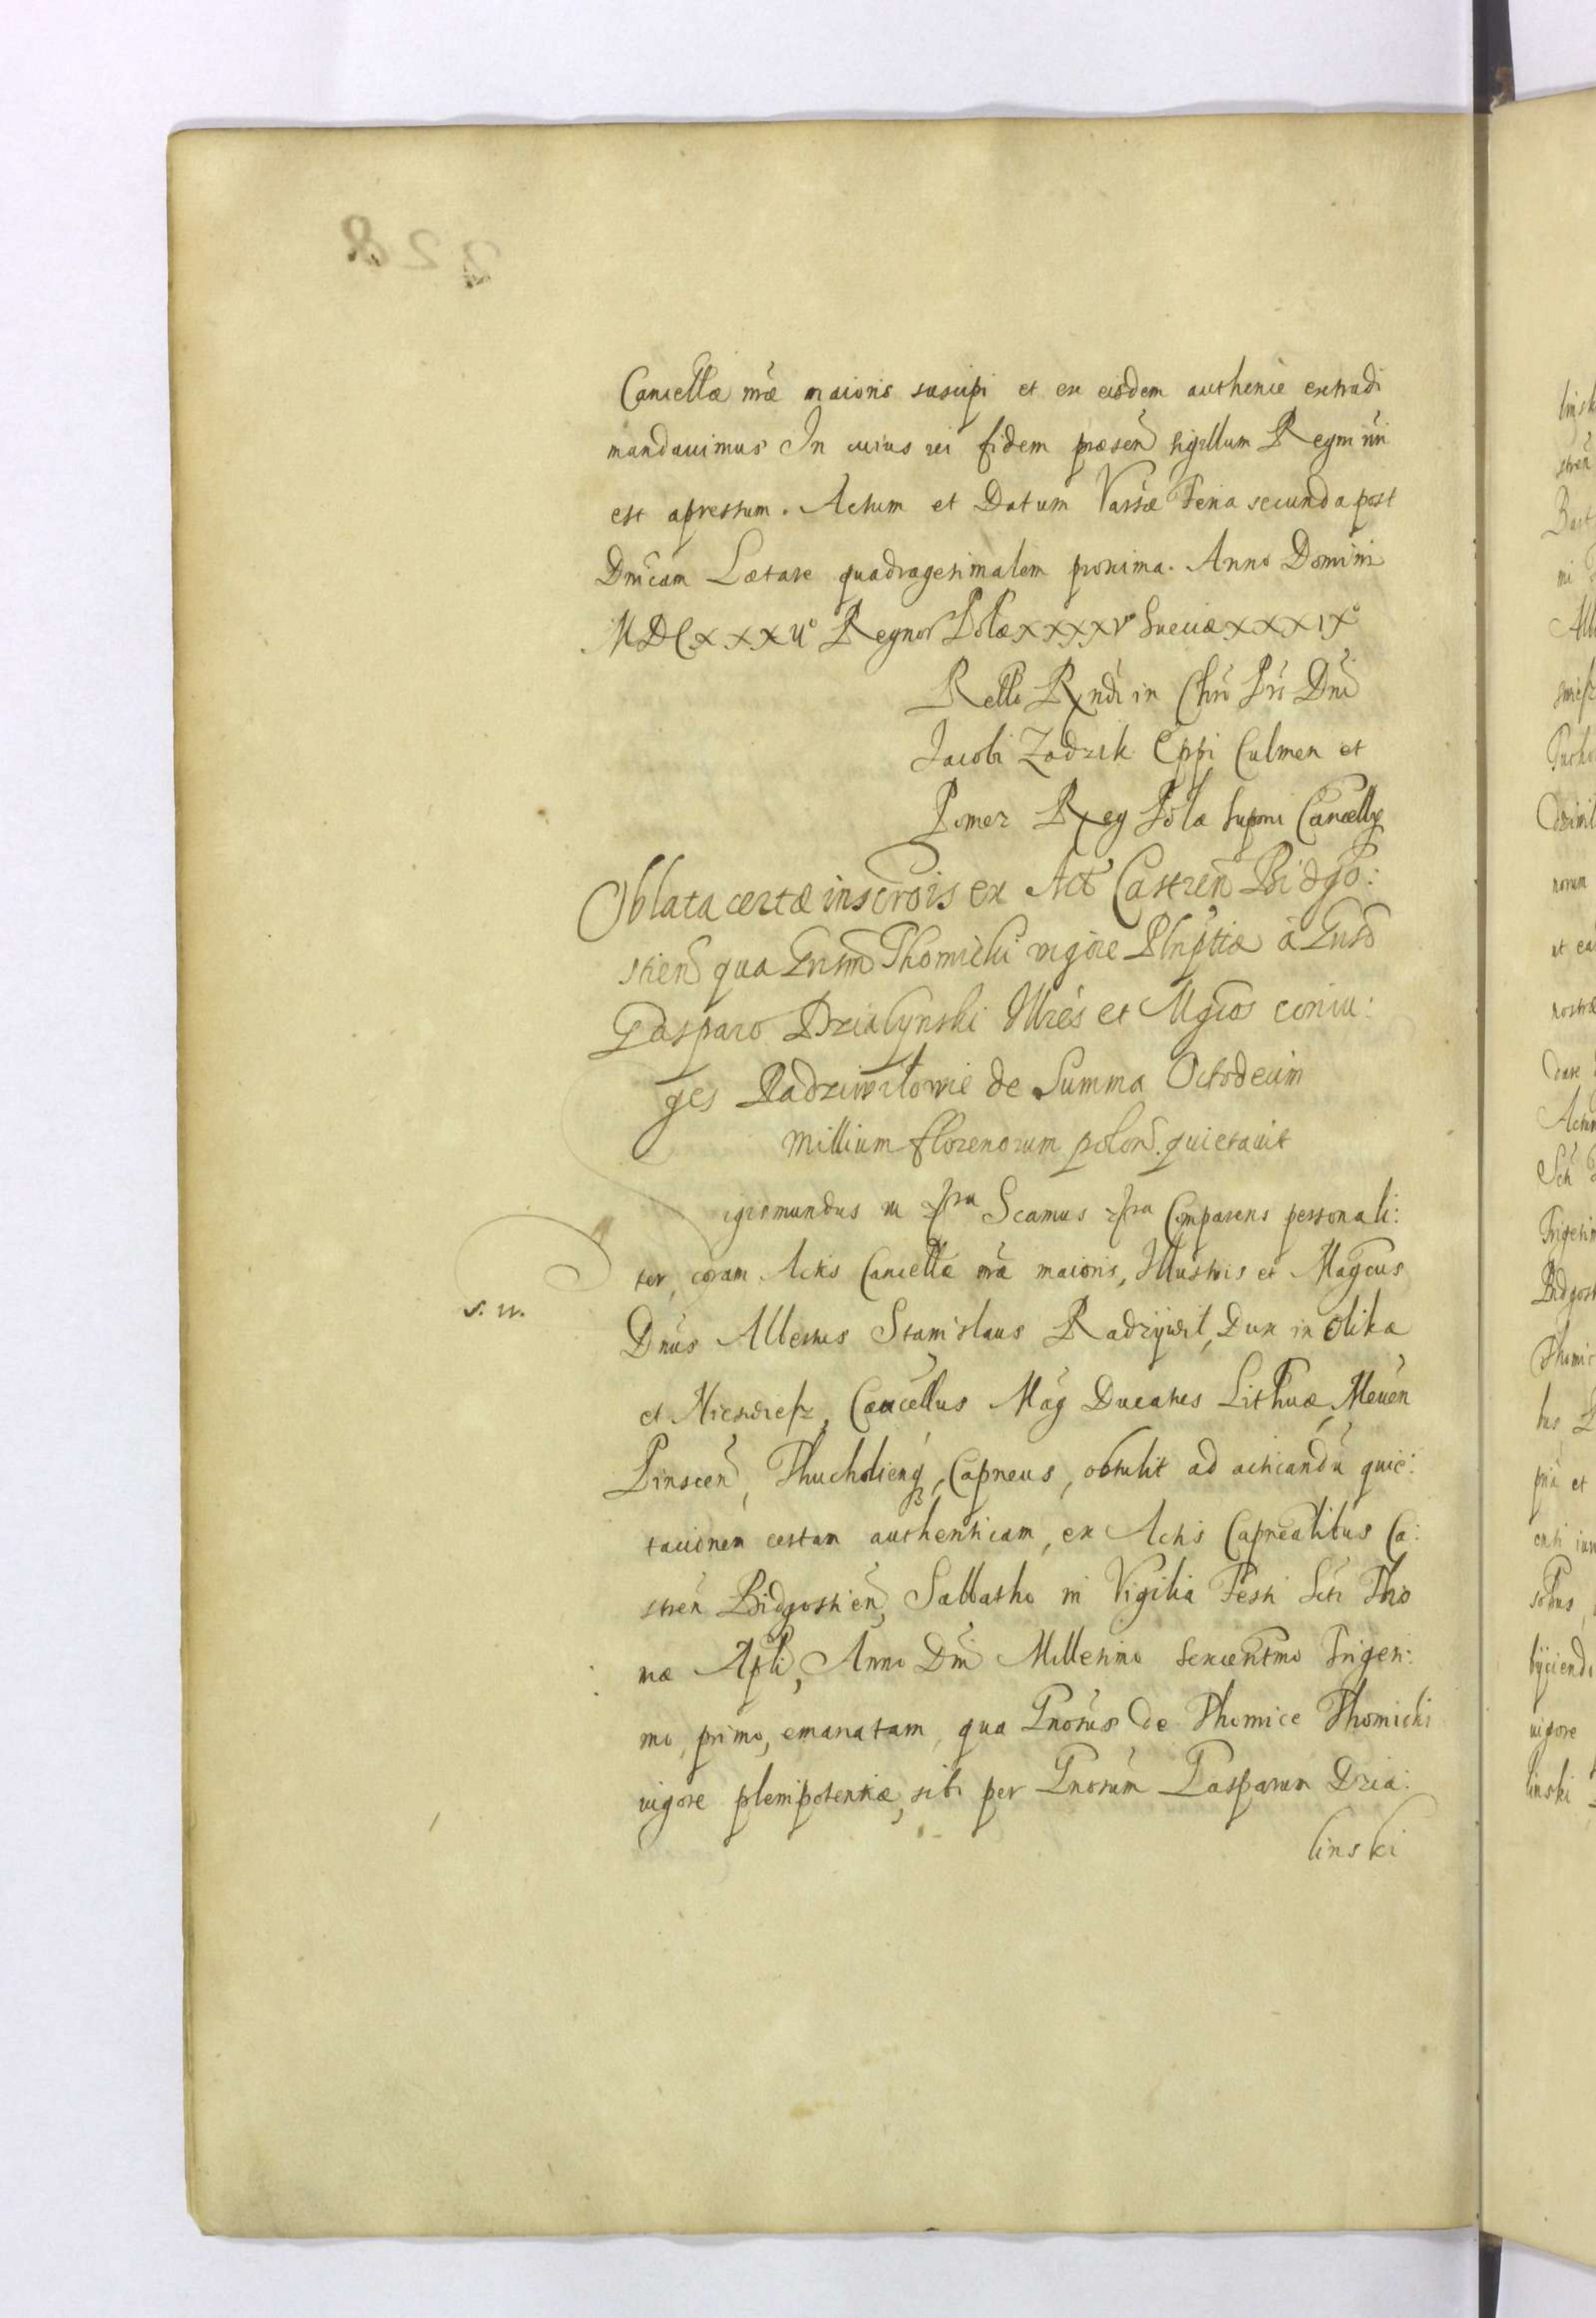 Cancellæ nræ maioris suscipi et ex eisdem authenie extradi
mandauimus In cuius rei fidem præsen sigillum Regni nri
est apressum. Actum et Datum Varsæ Feria secunda post
Dnicam Lætare quadragesimalem proxima. Anno Domini
MDCXXXIIº Regnor Polæ XXXXVº Sueciæ XXXIXº
Rello Rndi in Chro Pris Dni
Jacobi Zadzik Eppi Culmen et
Pomez Reg Polæ Supmi Cancellrÿ
Oblata certæ inscrois ex Act Castren Bidgo:
stien qua Gnsm Thomicki vigore Plnptiæ à Gnso
Gasparo Dzialynski Illres et Mgcos coniu:
ges Radziwilowie de Summa Octodecim
Millium florenorum polon. quietauit
igismundus ut spra Scamus spra Comparens personali:
ter, coram Actis Cancellæ nræ maioris, Illustris et Magcus
s. n.
Dnus Albertus Stanislaus Radzywil, Dux in Olika
et Nieswiesz, Cancellus Mag Ducatus Lithuæ, Meuen
Pinscen, Thucholieng, Capneus, obtulit ad acticandu quie:
tacionem certam authenticam, ex Actis Capnealibus Ca:
stren Bidgostien, Sabbatho in Vigilia Festi Scti Tho
mæ Apli, Anno Dni Millesimo sexcentmo Trigesi:
mo, primo, emanatam, qua Gnosus de Thomice Thomicki
vigore plenipotentiæ, sibi per Gnosum Gasparum Dzia:
linski